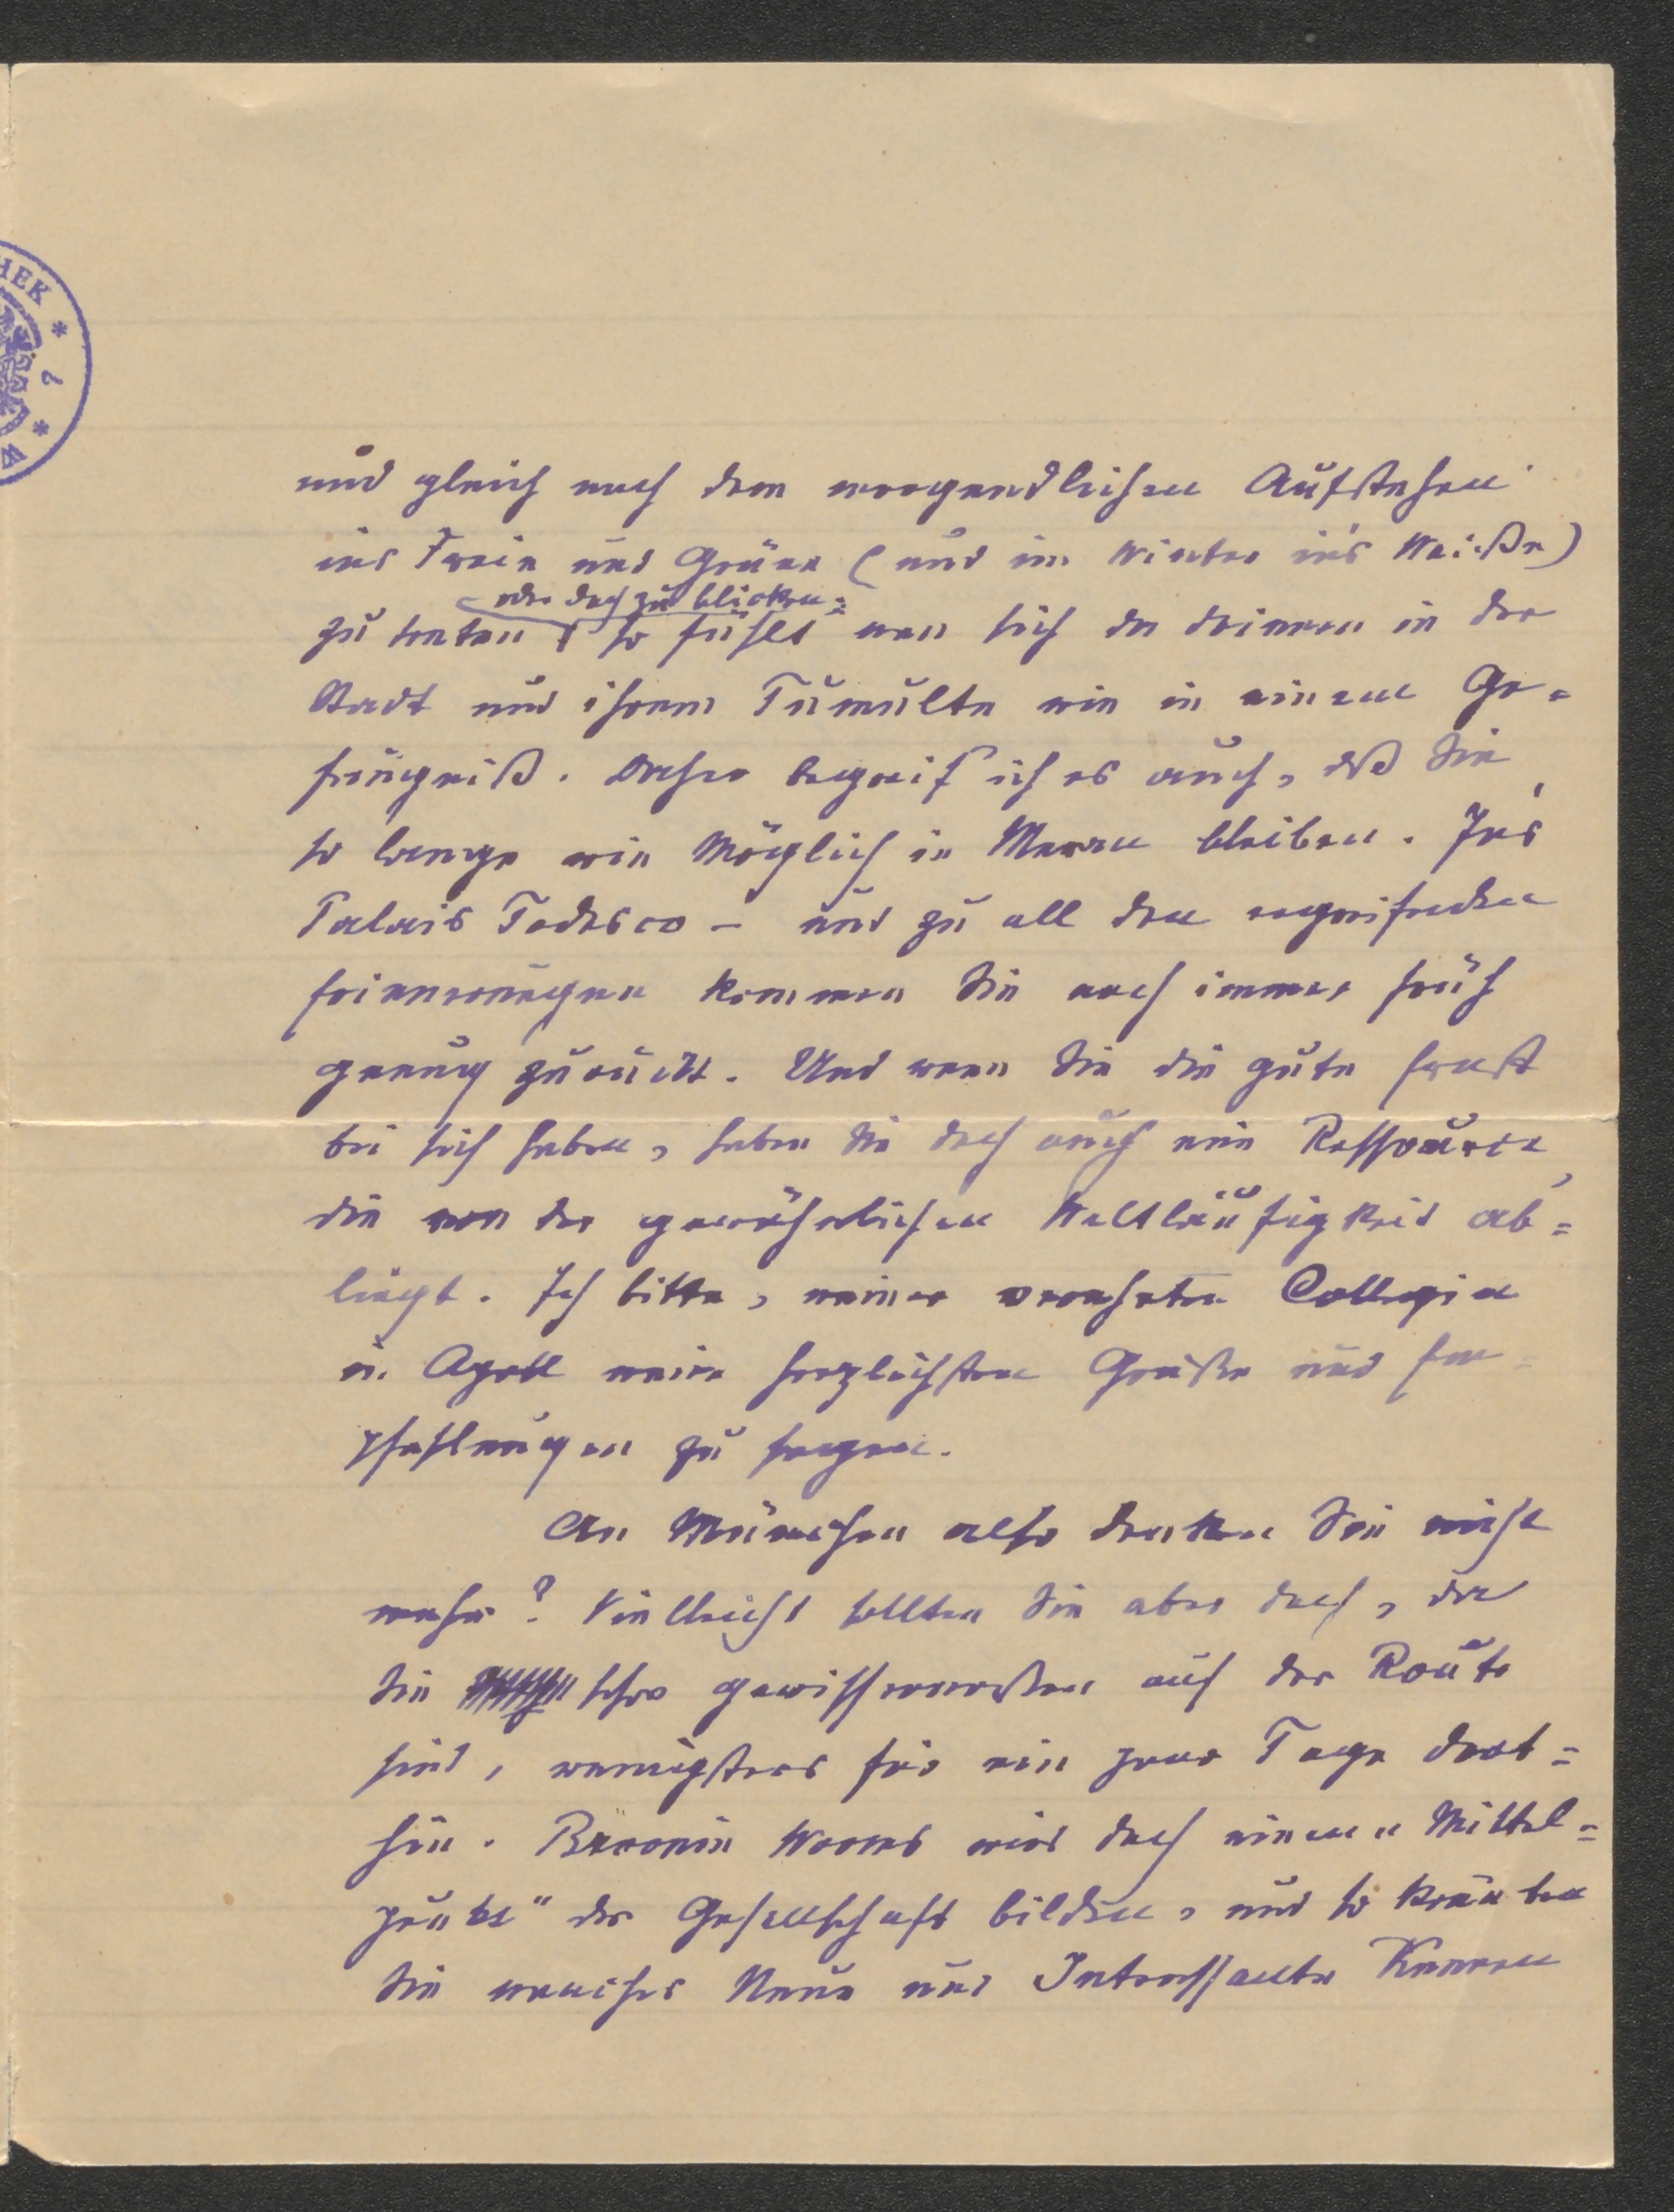 HEK * 2 *
und gleich nach dem morgendlichen Aufstehen
ins Freie und Grüne (und im Winter in's Weiße)
oder doch zu blicken:
zu treten, so fühlt man sich da drinnen in der
Stadt und ihrem Tumulte wie in einem Ge=
fängniß. Daher begreif' ich es auch, daß Sie
so lange wie möglich in Meran bleiben. In's
Palais Todesco – und zu all den ergreifenden
Erinnerungen kommen Sie noch immer früh
genug zurück. Und wenn Sie die gute
bei sich haben, haben Sie doch auch eine Ressource,
die von der gewöhnlichen Weltläufigkeit ab=
liegt. Ich bitte, meiner verehrten Collegin
in meine herzlichsten Grüße und Em=
pfehlungen zu sagen.
An München also denken Sie nicht
mehr? Vielleicht sollten Sie aber doch, da
Sie schon gewissermaßen auf der Route
sind, wenigstens für ein paar Tage dort=
hin. Baronin Worms wird doch einen „Mittel=
punkt" der Gesellschaft bilden, und so könnten
Sie manches Neue und Interessante kennen